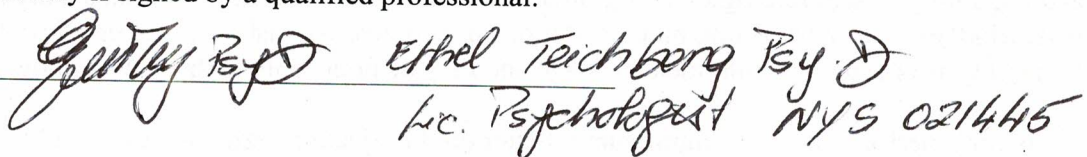 is signed by a qualified professional.
PsyD Ethel Teichberg Psy.D
Lic. Psychologist NYS 021445